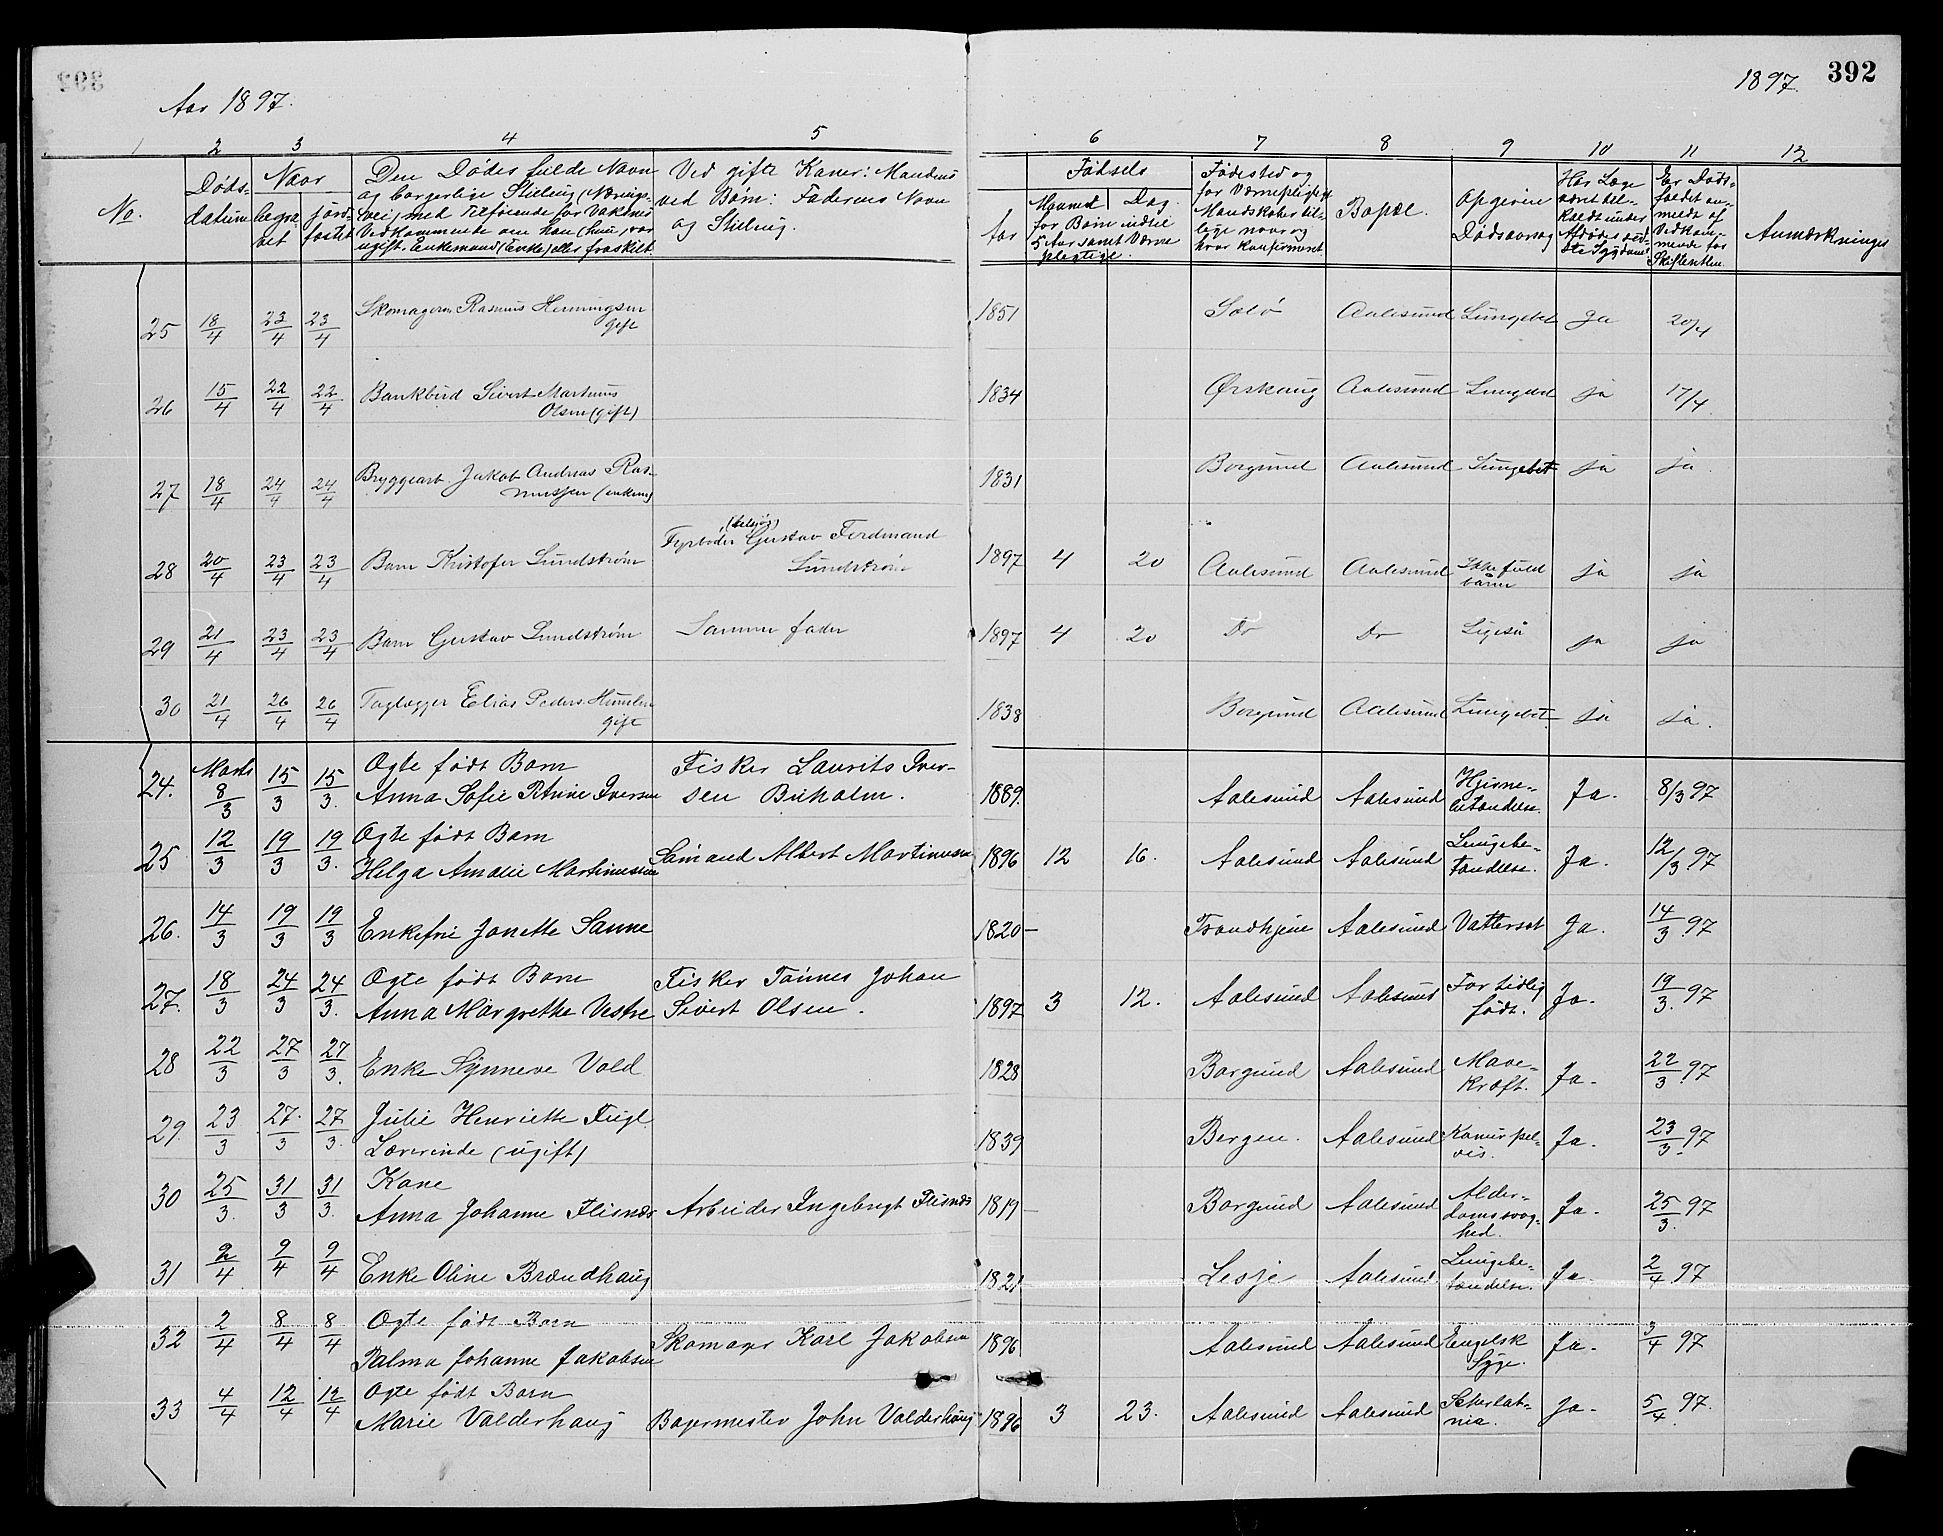 Aar 1897.
1897. 392
1 2 3 4 5 6 7 8 9 10 11 12
No.
Døds-
datum
Naar
begra-
vet
jord-
fæstet
Den Dødes fulde Navn
og borgerlige Stilling (Nærings-
vei, med Tilføiende for Voksnes
Vedkommende om han (hun) var
ugift, Enkemand (Enke) eller fraskilt.
Ved gifte Koner: Mandens
ved Børn: Faderens Navn
og Stilling.
Fødsels
Aar
Maaned Dag
for Børn indtil
5 Aar samt Værne
pligtige.
Fødested og
for Værnepligtige
Mandskaber til-
lige naar og
hvor konfirmeret
Bopæl.
Opgiven
Dødsaarsag
Har Læge
været til-
kaldt under
Afdødes sid-
ste Sygdom?
Er Døds-
faldet an-
meldt af
Vedkom-
mende for
Skifteretten
Anmærkninger
25 18/4 23/4 23/4 Skomagerm Rasmus Henningsen 1851 Aalesund Lungebet Ja 20/4
gift
26 15/4 22/4 22/4 Bankbud Sivert Martinus 1834 Ørskoug Aalesund Lungebet ja 17/4
Olsen (gift)
27 18/4 24/4 24/4 Bryggearb Jakob Andreas Ras- 1831 Borgund Aalesund Lungebet ja ja
mussen (enkem)
28 20/4 23/4 23/4 Barn Kristofer Sundstrøm Fyrbøder Gustav Ferdinand 1897 4 20 Aalesund Aalesund Ikke fuld ja ja
Sundstrøm baaren
29 21/4 23/4 23/4 Barn Gustav Sundstrøm Samme fader 1897 4 20 Do Do Ligesaa ja ja
30 21/4 26/4 26/4 Taglægger Elias Peders. Humlen 1838 Borgund Aalesund Lungebet ja ja.
gift
24. Marts 8/3 15/3 15/3. Ægte født Barn Fisker Laurits Iver- 1889. Aalesund Aalesund Hjerne- Ja. 8/3 97
Anna Sofie Petrine Iversen sen Buholm. betændelse.
25 12/3 19/3 19/3. Ægte født Barn Sømand Albert Martinussen 1896 12 16. Aalesund Aalesund Lungebe- Ja. 12/3 97
Helga Amalie Martinussen tændelse.
26. 14/3 19/3 19/3 Enkefru Jonette Sanne 1820 Trondhjem Aalesund Vattersot Ja. 14/3 97
27. 18/3 24/3 24/3. Ægte født Barn Fisker Tønnes Johan 1897 3 12. Aalesund Aalesund For tidlig Ja. 19/3. 97
Anna Margrethe Vestre Sivert Olsen. født.
28 22/3 27/3 27/3. Enke Synneve Vold 1828 Borgund Aalesund Mave- Ja. 22/3 97
kræft.
29. 23/3 27/3 27/3. Julie Henriette Fugl 1839 Bergen. Aalesund Ja. 23/3 97
Lærerinde (ugift)
30 25/3. 31/3 31/3. Kone 1819 Borgund Aalesund Alder- Ja. 25/3. 97
Anna Johanne Flisnæs Arbeider Ingebrigt Flisnæs domssvag-
hed.
31 2/4 9/4 9/4 Enke Oline Brændhaug 1821 Lesje Aalesund Lungebe- Ja. 2/4 97
tændelse.
32 2/4 8/4 8/4 Ægte født Barn Skomager Karl Jakobsen 1896 Aalesund Aalesund Engelsk Ja. 3/4 97
Palma Johanne Jakobsen Syge.
33 4/4 12/4 12/4 Ægte født Barn 1896 3 23. Aalesund Aalesund Skarlat- Ja. 5/4 97.
Marie Valderhaug Bagermester John Valderhaug